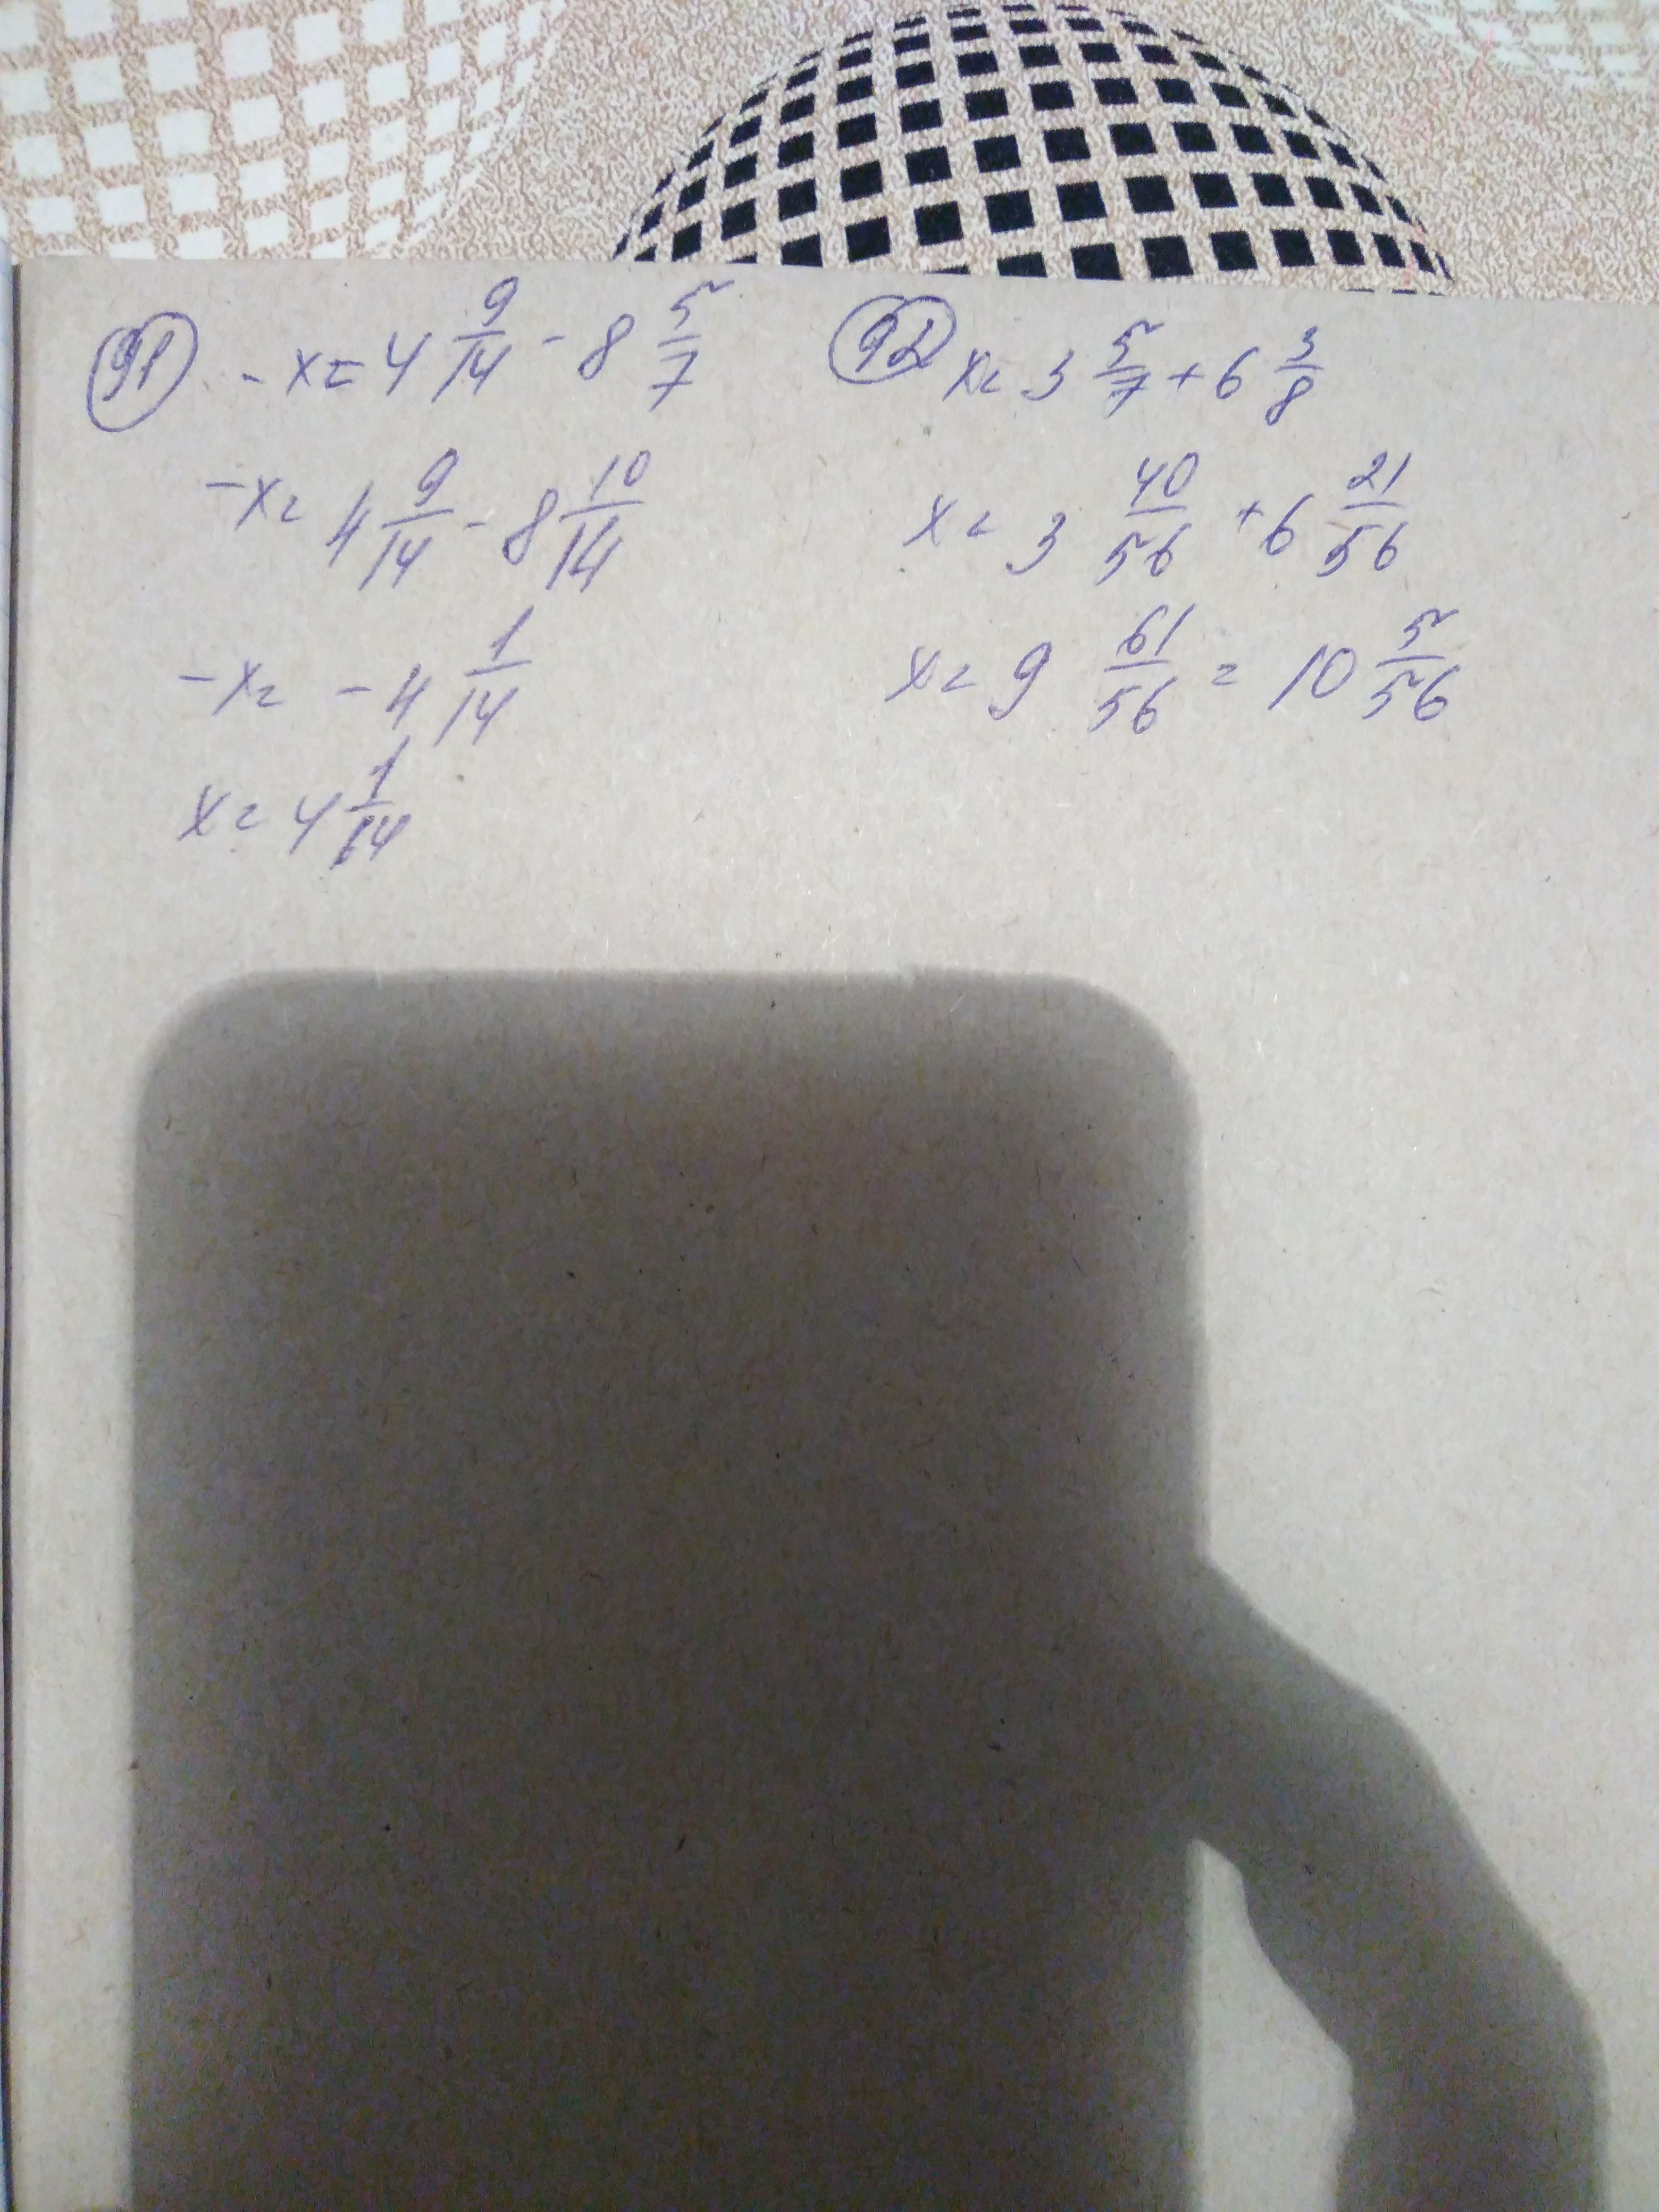 91 -x = 4 9/14 - 8 5/7
-x = 4 9/14 - 8 10/14
-x = - 4 1/14
x = 4 1/14
92 x = 3 5/7 + 6 3/8
x = 3 40/56 + 6 21/56
x = 9 61/56 = 10 5/56